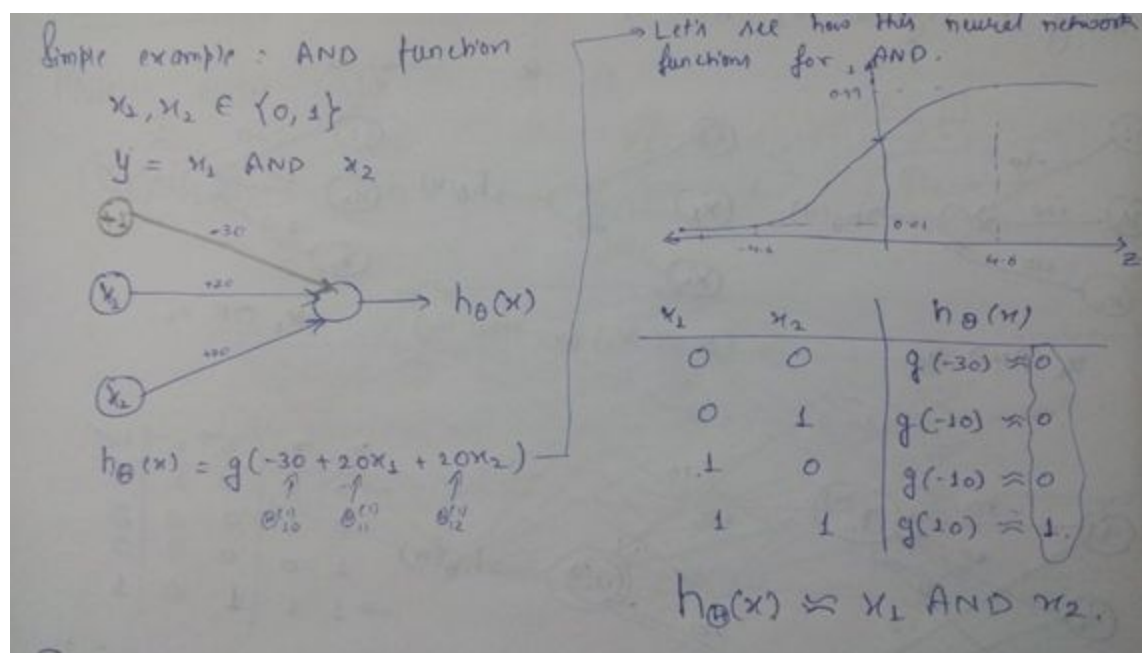 Simple example : AND function
x₁, x₂ ∈ {0, 1}
y = x₁ AND x₂
+1
-30
x₁
+20
hΘ(x)
+20
x₂
hΘ(x) = g(-30 + 20x₁ + 20x₂)
Θ₁₀⁽¹⁾ Θ₁₁⁽¹⁾ Θ₁₂⁽¹⁾
→ Let's see how this neural network
functions for AND.
0.99
0.01
-4.6 4.6 z
x₁ x₂ hΘ(x)
0 0 g(-30) ≈ 0
0 1 g(-10) ≈ 0
1 0 g(-10) ≈ 0
1 1 g(10) ≈ 1.
hΘ(x) ≈ x₁ AND x₂.